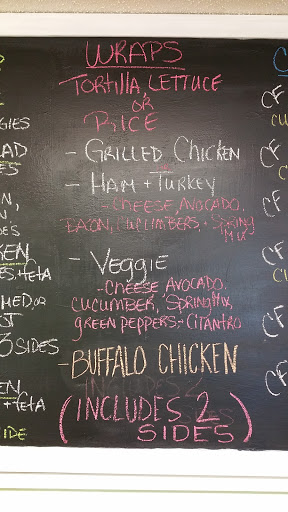 WRAPS
TORTILLA, LETTUCE
OR
RICE
- GRILLED CHICKEN
- HAM + TURKEY
- CHEESE, AVOCADO,
BACON, CUCUMBERS, + SPRING
MIX
- VEGGIE
- CHEESE, AVOCADO,
CUCUMBER, SPRING MIX,
GREEN PEPPERS - CILANTRO
- BUFFALO CHICKEN
INCLUDES 2
SIDES
(INCLUDES 2
SIDES)
KEN
+ fetA
3 SIDES
EN
+ fetA
IDE
C
CF
CU
CF
CF
CF
CU
CF
CF